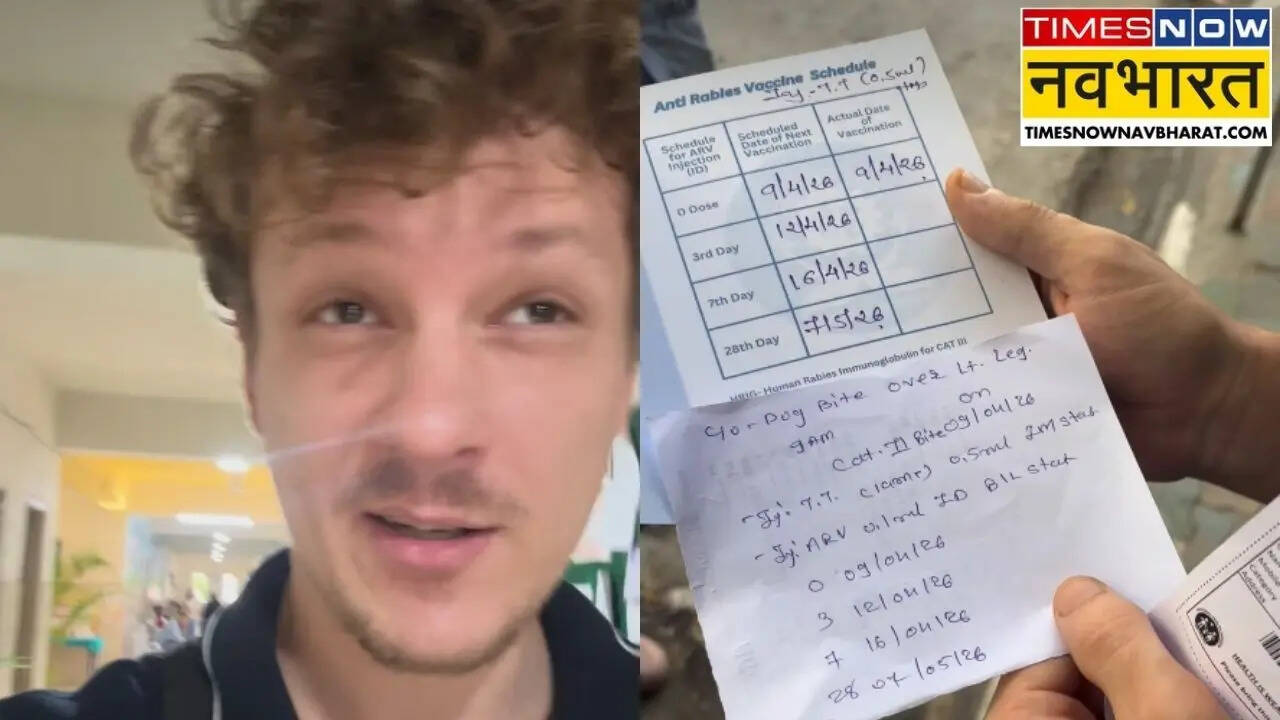 TIMES NOW
नवभारत
TIMESNOWNAVBHARAT.COM
Anti Rabies Vaccine Schedule
(0.5ml)
Schedule for ARV Injection (ID)
Scheduled Date of Next Vaccination
Actual Date of Vaccination
0 Dose 9/4/26 9/4/26
3rd Day 12/4/26
7th Day 16/4/26
28th Day 7/5/26
HRIG- Human Rabies Immunoglobulin for CAT III
C/o - Dog Bite over Lt. Leg.
on
9AM
Cat. II Bite 09/04/26
- Inj. T.T. 0.5ml IM stat
- Inj. ARV 0.1ml ID B/L stat
0 09/04/26
3 12/04/26
7 16/04/26
28 07/05/26
Category
Address